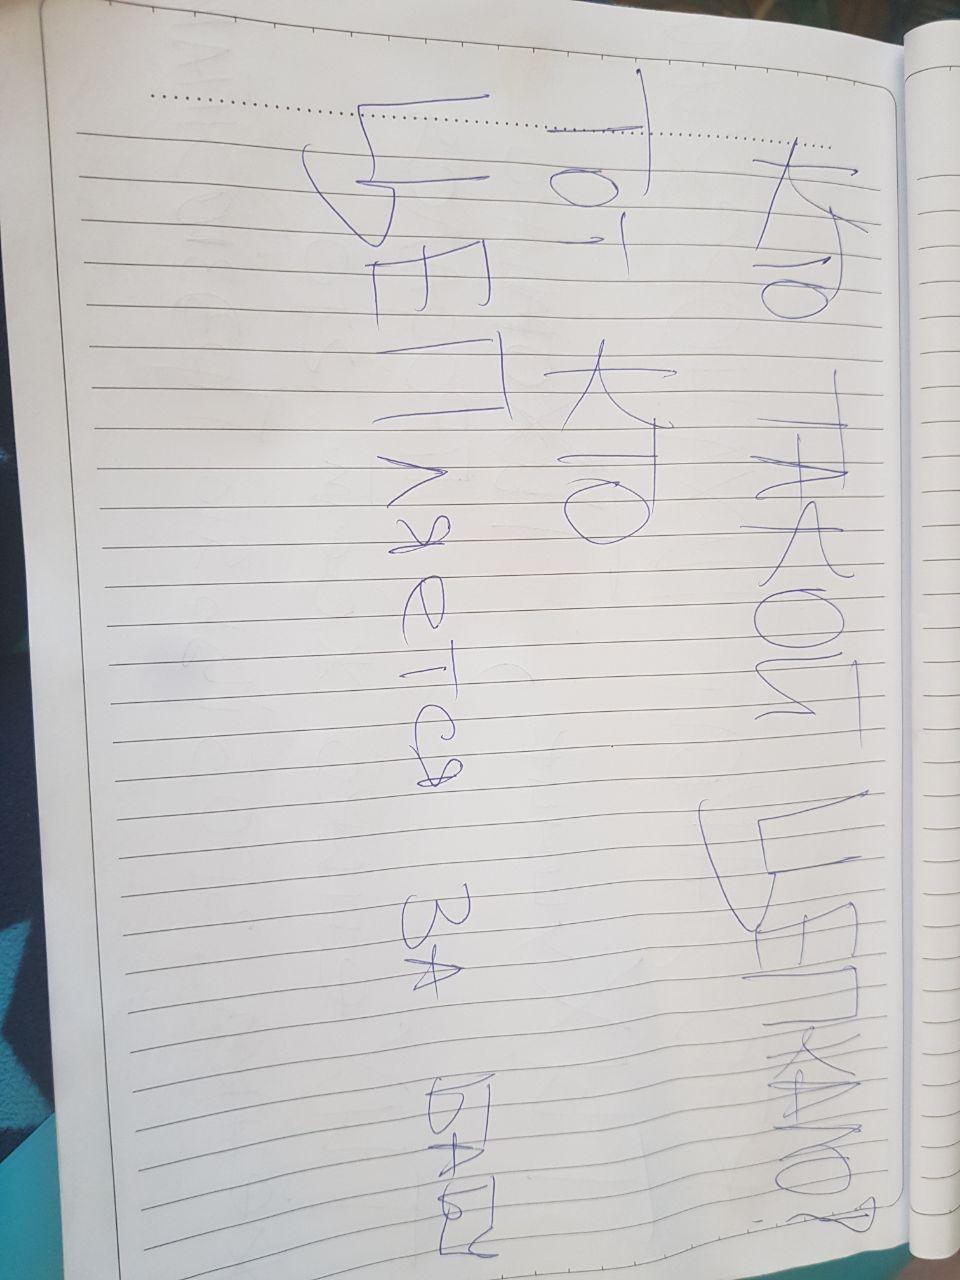 КТО ТАКОЙ ЦЕПКАЛО?
ТОТ КТО
ЦЕПляется ЗА БАБУ